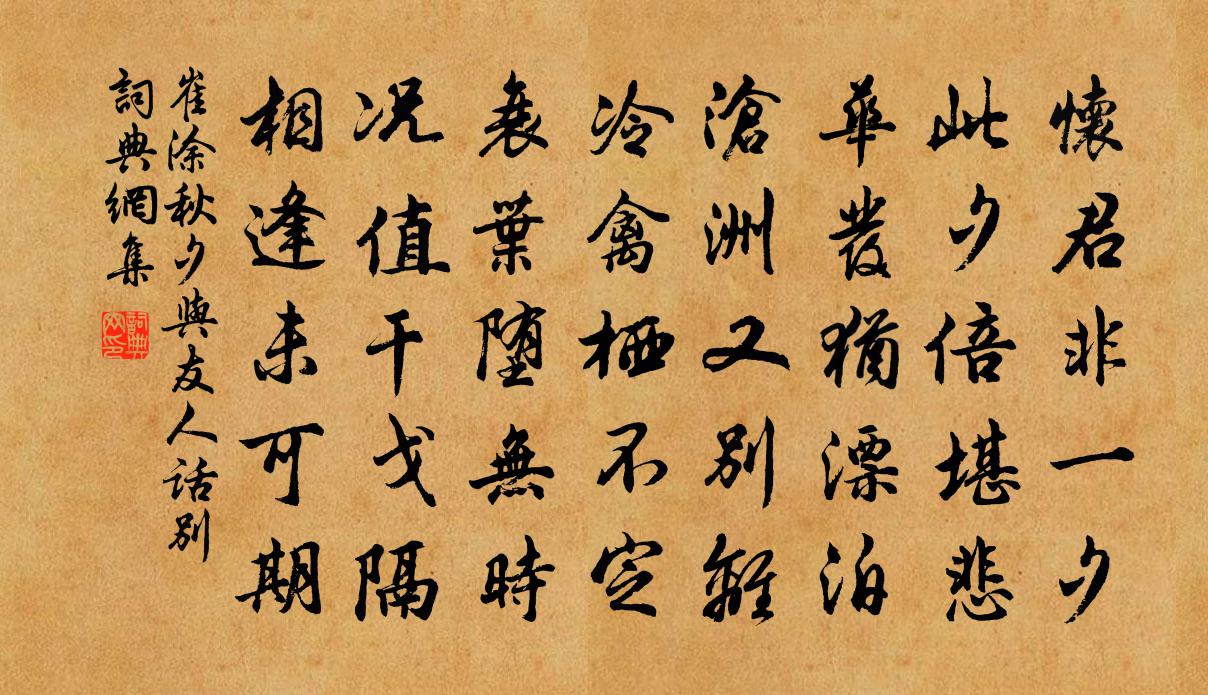 懷君非一夕
此夕倍堪悲
華發猶漂泊
滄洲又別離
冷禽栖不定
衰葉堕無時
况值干戈隔
相逢未可期
崔涂秋夕與友人話別
詞典網集
詞典网印